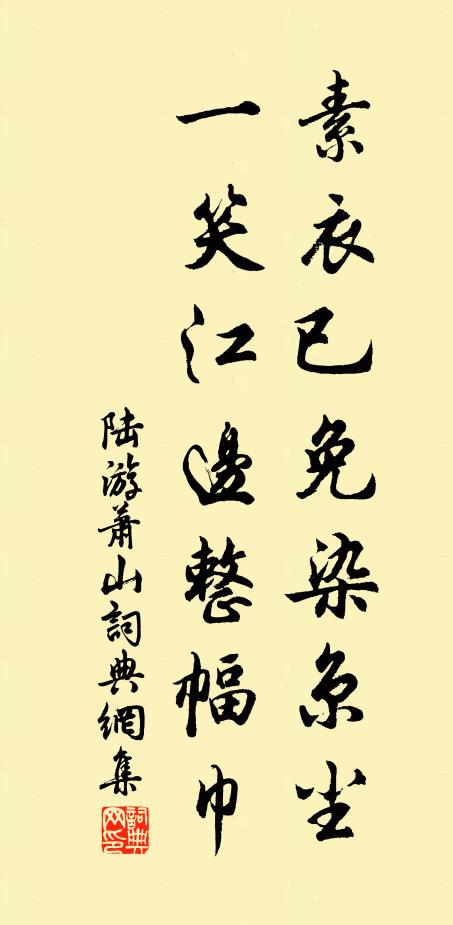 素衣已免染京尘
一笑江邊整幅巾
陆游萧山詞典網集
詞典网印